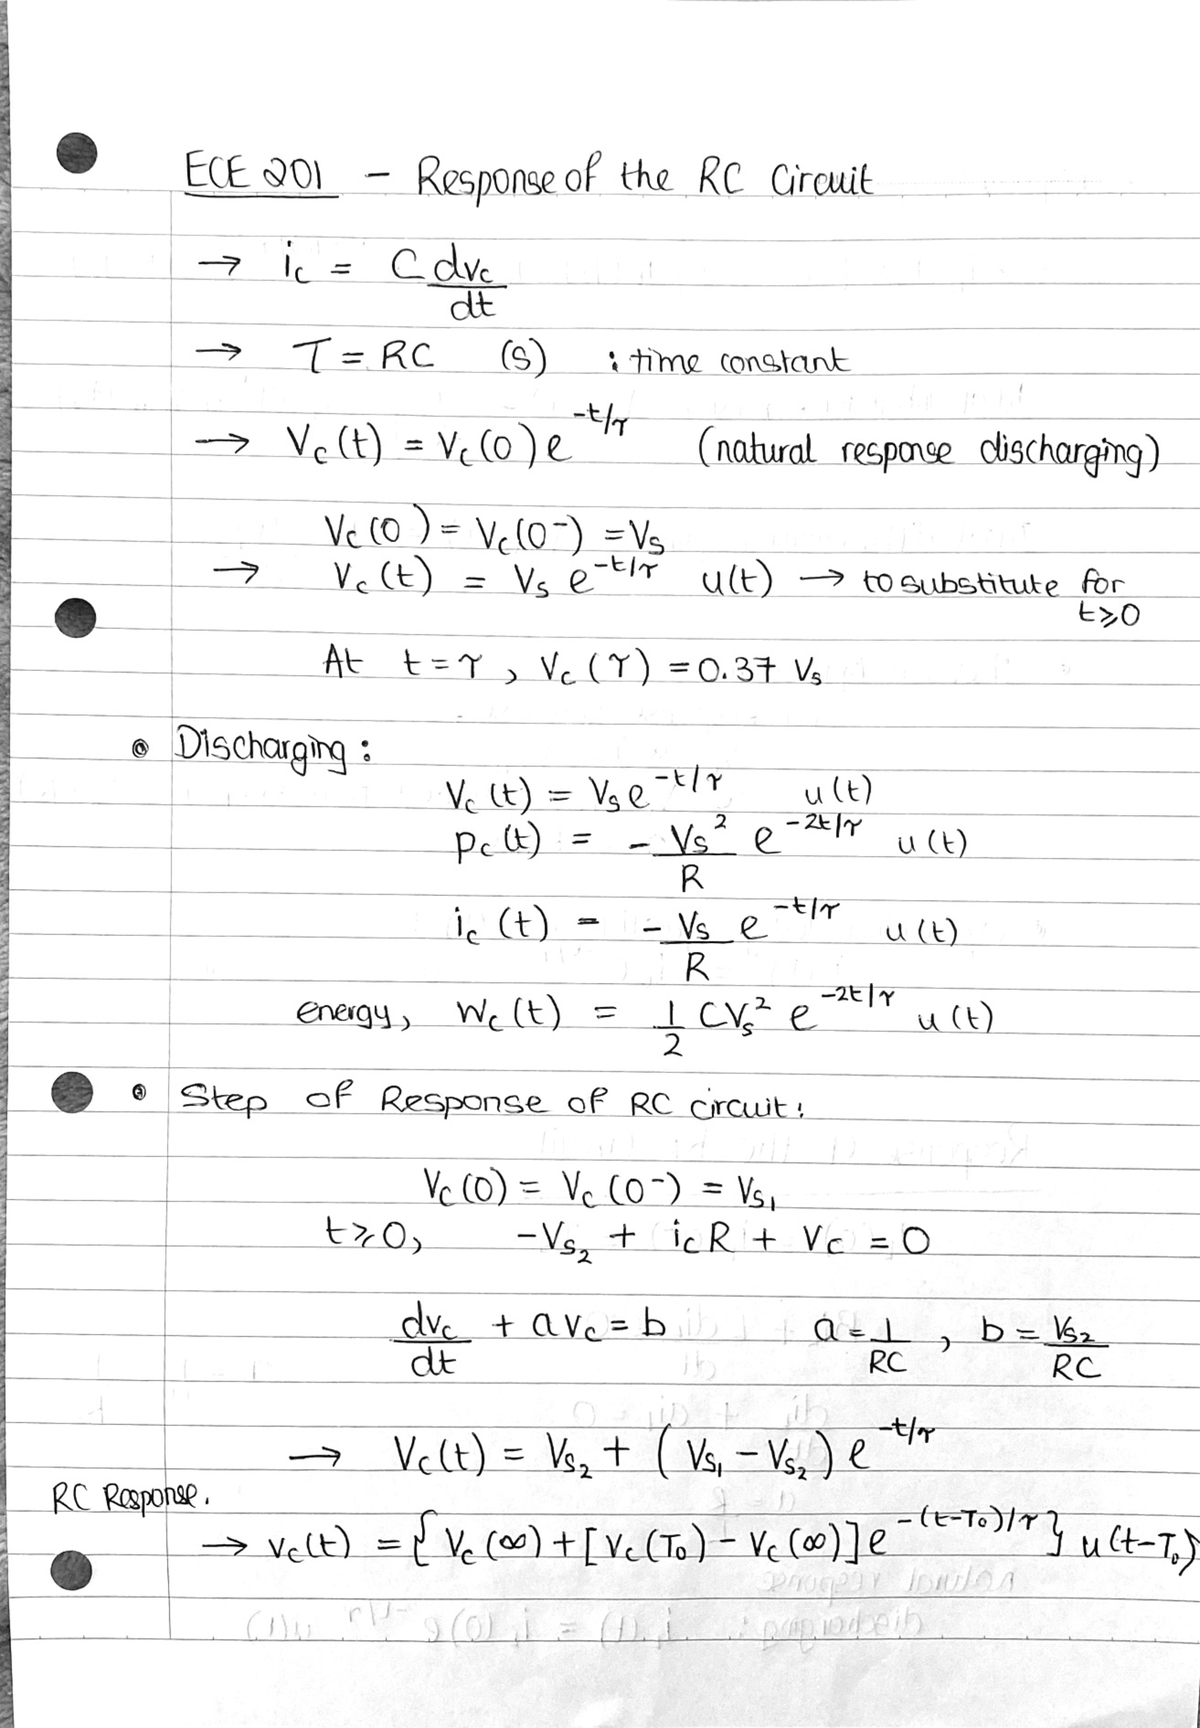 ECE 201 - Response of the RC Circuit
→ i_c = C dv_c/dt
→ τ = RC (s) : time constant
→ V_c(t) = V_c(0) e^(-t/τ) (natural response discharging)
V_c(0) = V_c(0⁻) = V_s
→ V_c(t) = V_s e^(-t/τ) u(t) → to substitute for t⩾0
At t = τ, V_c(τ) = 0.37 V_s
Discharging:
V_c(t) = V_s e^(-t/τ) u(t)
p_c(t) = -V_s²/R e^(-2t/τ) u(t)
i_c(t) = -V_s/R e^(-t/τ) u(t)
energy, W_c(t) = 1/2 CV_s² e^(-2t/τ) u(t)
Step of Response of RC circuit:
V_c(0) = V_c(0⁻) = V_s₁
t⩾0, -V_s₂ + i_c R + V_c = 0
dv_c/dt + av_c = b a = 1/RC, b = V_s₂/RC
→ V_c(t) = V_s₂ + (V_s₁ - V_s₂) e^(-t/τ)
RC Response.
→ v_c(t) = {V_c(∞) + [V_c(T₀) - V_c(∞)] e^(-(t-T₀)/τ)} u(t-T₀)